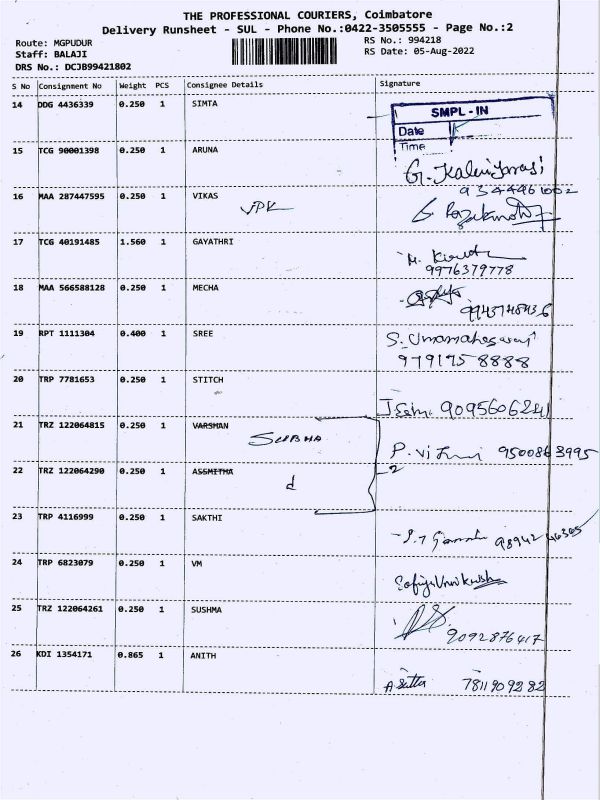 THE PROFESSIONAL COURIERS, Coimbatore
Delivery Runsheet - SUL - Phone No.:0422-3505555 - Page No.:2
Route: MGPUDUR
RS No.: 994218
Staff: BALAJI
RS Date: 05-Aug-2022
DRS No.: DCJB99421802
S No Consignment No Weight PCS Consignee Details Signature
14 DDG 4436339 0.250 1 SIMTA
SMPL - IN
Date
Time
15 TCG 90001398 0.250 1 ARUNA
16 MAA 287447595 0.250 1 VIKAS
17 TCG 40191485 1.560 1 GAYATHRI
9976379778
18 MAA 566588128 0.250 1 MECHA
19 RPT 1111304 0.400 1 SREE
S. Umamaheswari
9791758888
20 TRP 7781653 0.250 1 STITCH
9095606241
21 TRZ 122064815 0.250 1 VARSHAN
SUBHA
9500863995
22 TRZ 122064290 0.250 1 ASSMITHA
2
d
23 TRP 4116999 0.250 1 SAKTHI
24 TRP 6823079 0.250 1 VM
25 TRZ 122064261 0.250 1 SUSHMA
9092876417
26 KDI 1354171 0.865 1 ANITH
7811909282